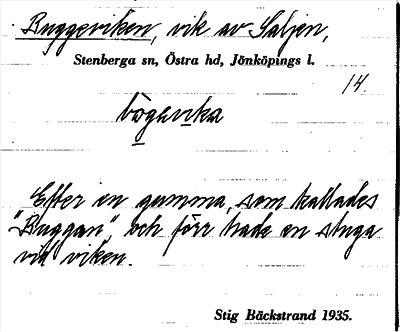 Buggeviken, vik av Saljen,
Stenberga sn, Östra hd, Jönköpings l.
14.
bögavika
Efter en gumma, som kallades
"Buggan", och förr hade en stuga
vid viken.
Stig Bäckstrand 1935.